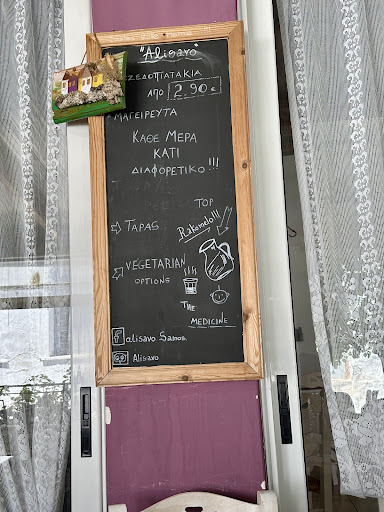 "Alisavo"
ΜΕΖΕΔΟΠΙΑΤΑΚΙΑ
ΑΠΟ 2.90€
ΜΑΓΕΙΡΕΥΤΑ
ΚΑΘΕ ΜΕΡΑ
ΚΑΤΙ
ΔΙΑΦΟΡΕΤΙΚΟ!!!
TOP
Rakomelo!!!
TAPAS
VEGETARIAN
OPTIONS
THE
MEDICINE
f alisavo Samos
Alisavo